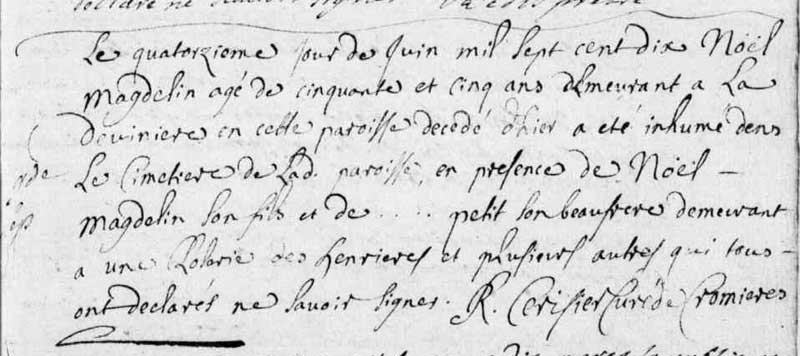 declaré ne savoir signer
Le quatorziome jour de Juin mil sept cent dix Noël
Magdelin agé de cinquante et cinq ans demeurant a La
deviniere en cette paroisse decedé d'hier a eté inhumé dens
Le Cimetiere de Lad. paroisse, en presence de Noël –
Magdelin son fils et de . . . . . petit son beaufrere demeurant
a une Closerie des henrieres et plusieurs autres qui tous –
ont declarés ne savoir signer. R. Cerisier Curé de Cromieres